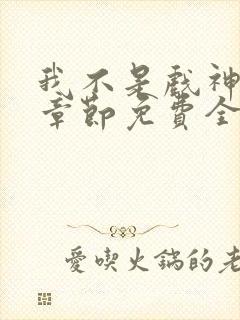 我不是戲神
章節免費全
愛喫火鍋的老